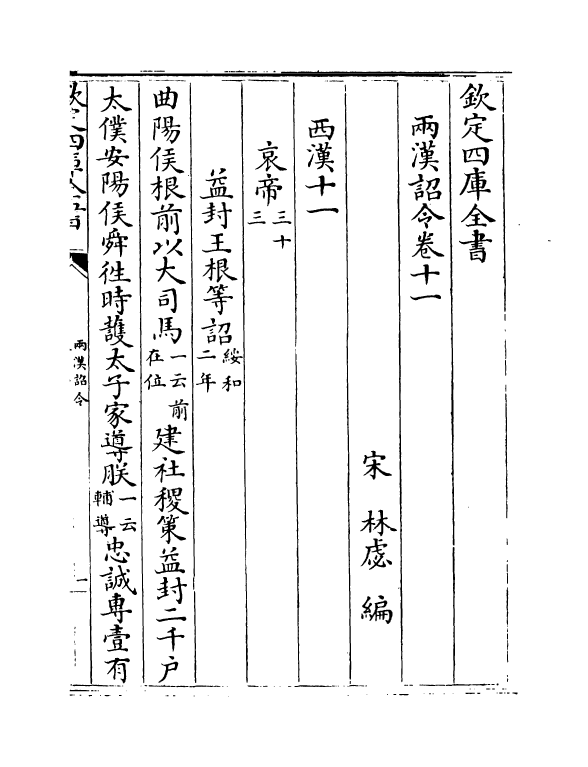 欽定四庫全書
兩漢詔令卷十一
宋 林虙 編
西漢十一
哀帝三十三
益封王根等詔綏和二年
曲陽侯根前以大司馬一云前在位建社稷策益封二千户
太僕安陽侯舜往時䕶太子家導朕一云輔導忠誠專壹有
欽定四庫全書
兩漢詔令
一